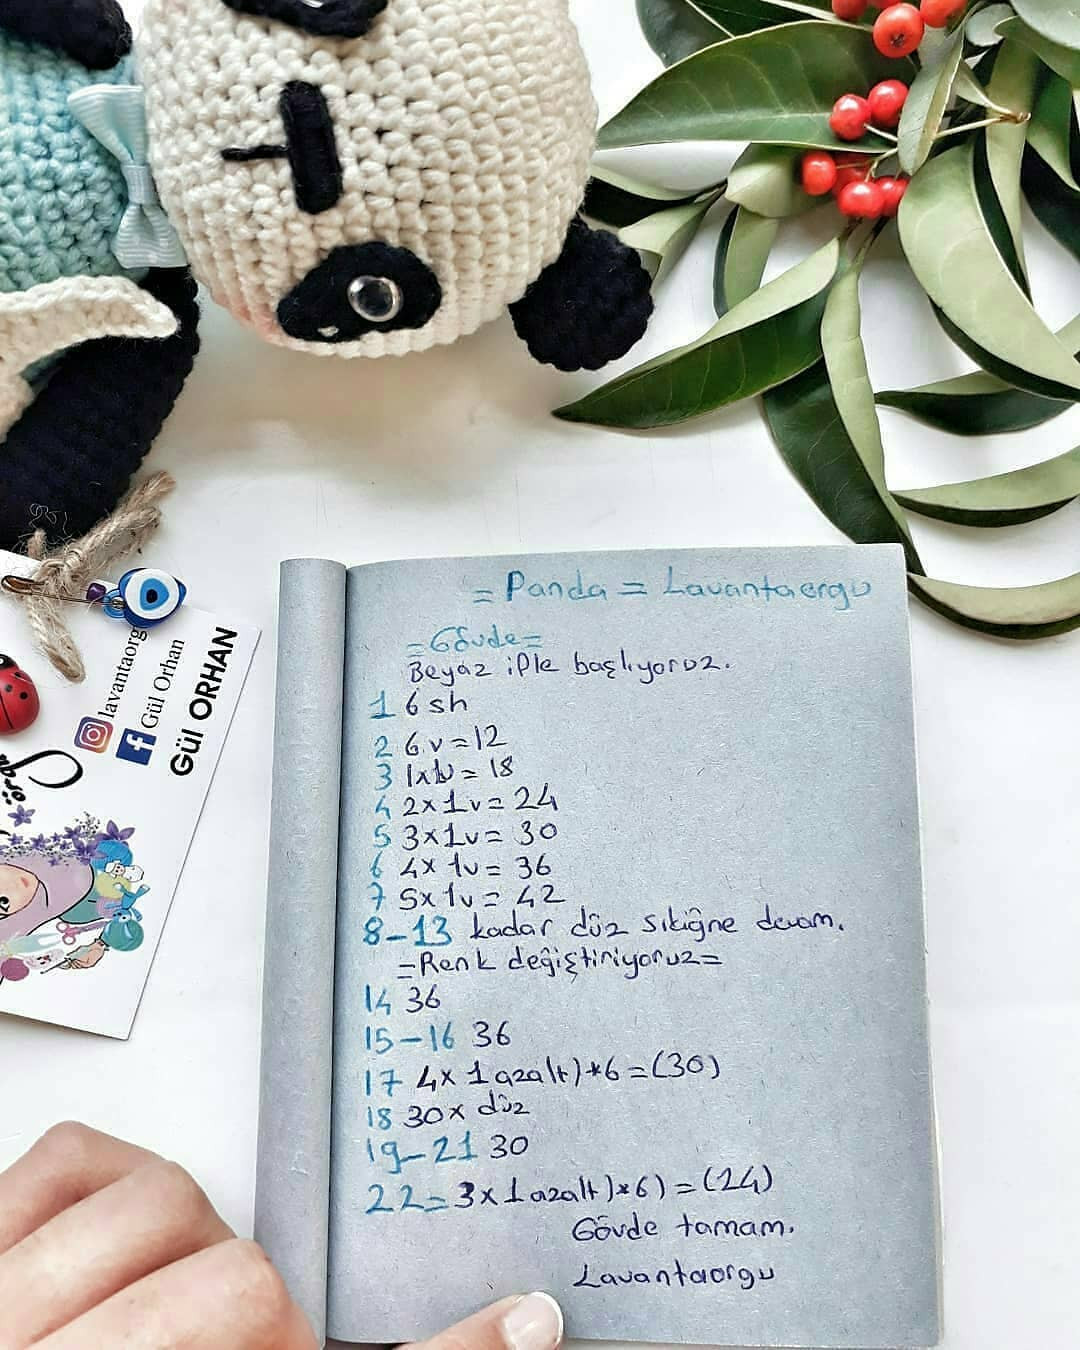 = Panda = Lavantaorgu
=Gövde=
Beyaz iple başlıyoruz.
1 6 sh
2 6 v = 12
3 1x1v = 18
4 2x1v = 24
5 3x1v = 30
6 4x 1v = 36
7 5x1v = 42
8-13 kadar düz sıkiğne devam.
=Renk değiştiriyoruz=
14 36
15-16 36
17 4x 1 azalt)*6=(30)
18 30x düz
19-21 30
22= 3x1azalt)*6)=(24)
Gövde tamam.
Lavantaorgu
lavantaorg
Gül Orhan
GÜl ORHAN